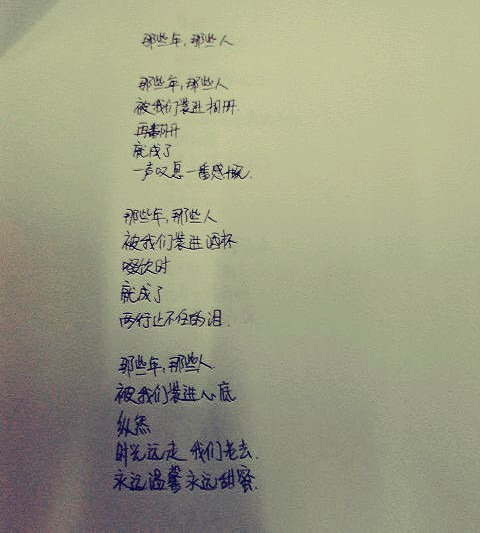 那些年，那些人
那些年，那些人
被我们装进相册.
再翻开
就成了
一声叹息一番感慨.
那些年，那些人
被我们装进酒杯
啜饮时
就成了
两行止不住的泪.
那些年，那些人
被我们装进心底
纵然
时光远走 我们老去.
永远温馨 永远甜蜜.